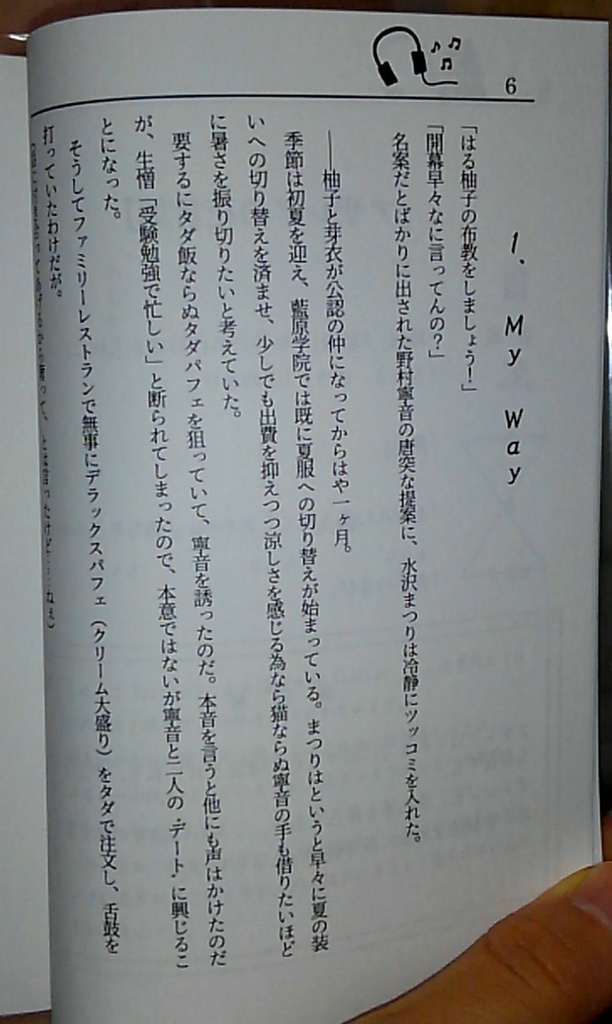 6
1. My Way
「はる柚子の布教をしましょう！」
「開幕早々なに言ってんの？」
名案だとばかりに出された野村寧音の唐突な提案に、水沢まつりは冷静にツッコミを入れた。
――柚子と芽衣が公認の仲になってからはや一ヶ月。
季節は初夏を迎え、藍原学院では既に夏服への切り替えが始まっている。まつりはというと早々に夏の装
いへの切り替えを済ませ、少しでも出費を抑えつつ涼しさを感じる為なら猫ならぬ寧音の手も借りたいほど
に暑さを振り切りたいと考えていた。
要するにタダ飯ならぬタダパフェを狙っていて、寧音を誘ったのだ。本音を言うと他にも声はかけたのだ
が、生憎「受験勉強で忙しい」と断られてしまったので、本意ではないが寧音と二人の〝デート〟に興じるこ
とになった。
そうしてファミリーレストランで無事にデラックスパフェ（クリーム大盛り）をタダで注文し、舌鼓を
打っていたわけだが。
って、とは言ったけど……ねぇ）